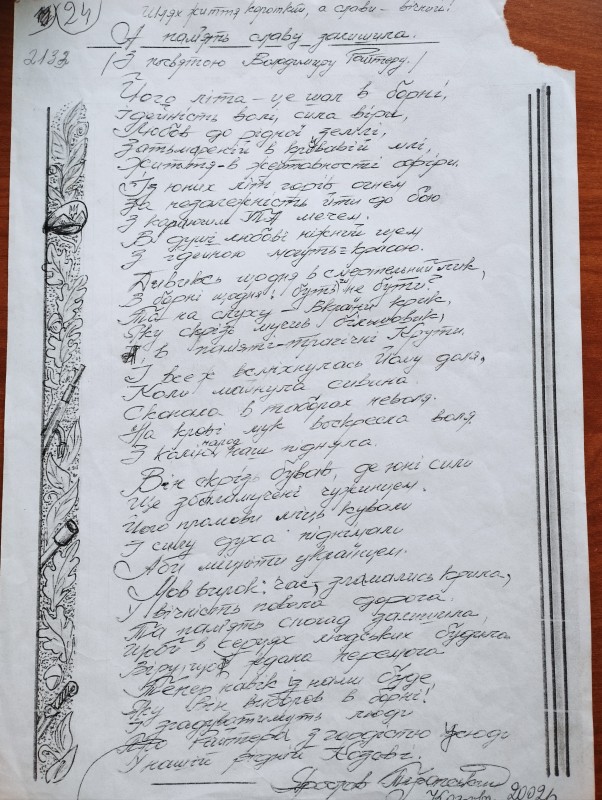 Шлях життя короткий, а слави - вічний!
24
А пам'ять славу залишила.
2133
/З посвятою Володимиру Рейтеру./
Його літа - це шал в борні,
Ідейність волі, сила віри,
Любов до рідної землі,
в кривавій млі,
Життя - в жертовності офіри.
Із юних літ горів огнем
За незалежність йти до бою
З караючим мечем.
В душі любові ніжний щем
З ідейною красою.
Дивись щодня в смертельний лик,
В борні щодня: бути не бути?
Та на слуху - Вкраїни крик,
Яку скрізь мучив більшовик,
В пам'яті - трагічні Крути.
І все ж всміхнулась Йому доля,
Коли майнула сивина.
Сконала в таборах неволя.
На крові мук воскресла воля
З колін народ наш підняла.
Він скрізь бував, де юні сили
Ще збаламучені чужинцем.
Його промови міць кували
І силу духа піднімали
Аби українцем.
Мов вирок: час, зламались крила,
У вічність повела дорога.
Та пам'ять спогад залишила,
Щоб в серцях людських будила
Віру: ждана перемога
Тепер навік із нами буде
Яку він виборов в борні!
І згадуватимуть люди
Про Рейтера з гордістю усюди
У нашій рідній Козові.
Ярослав
Козова 2002р.